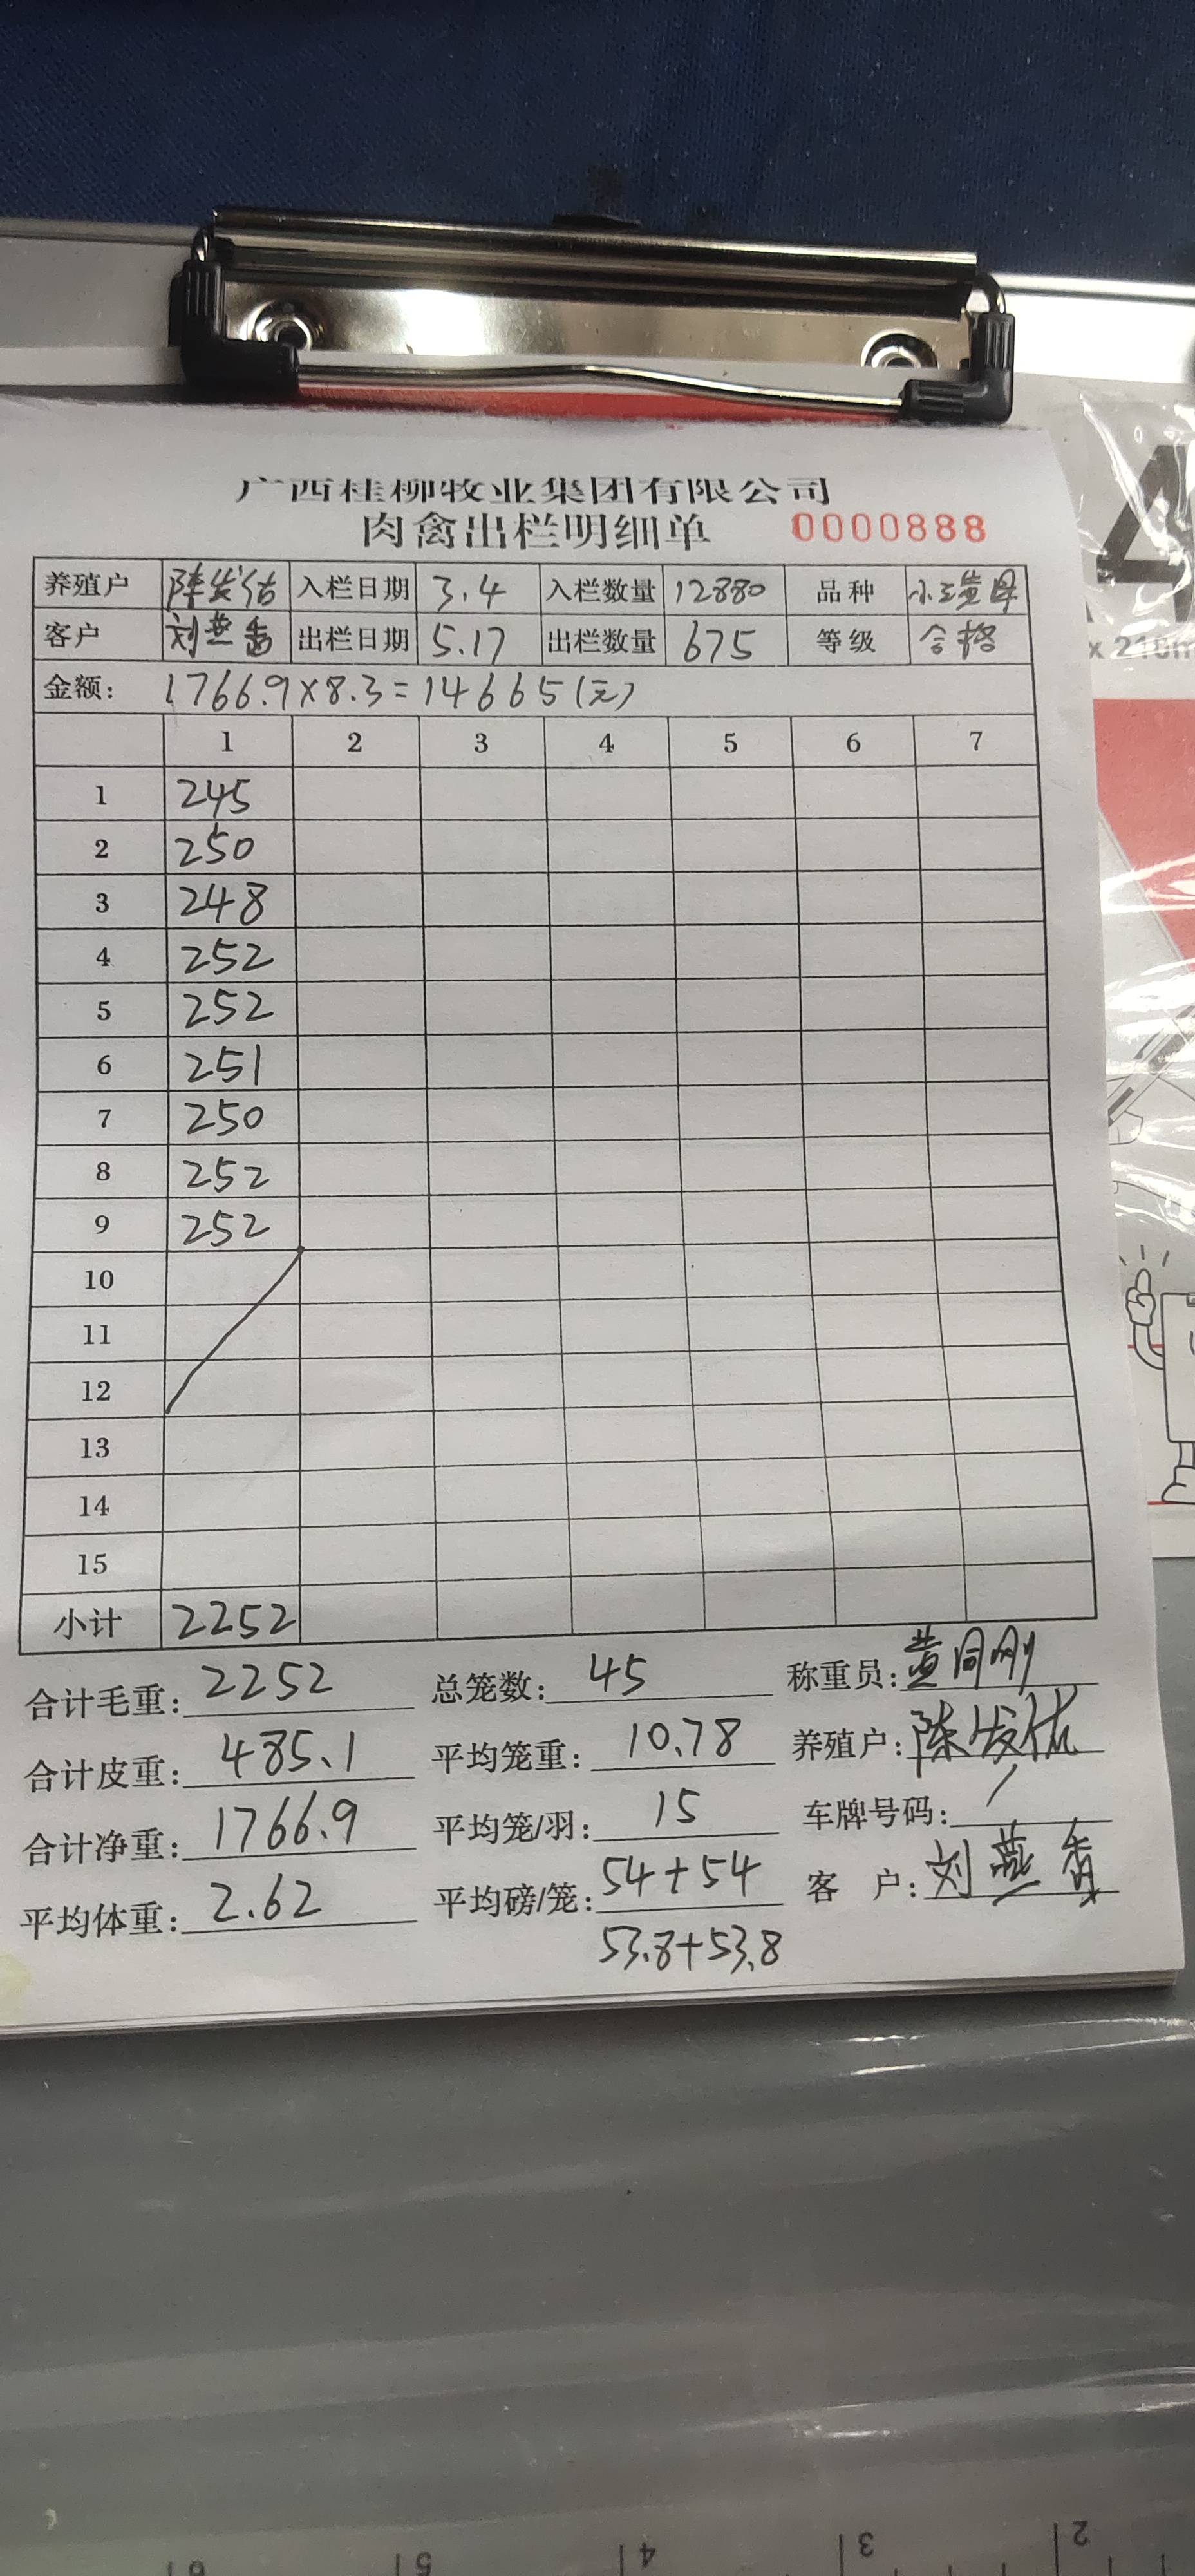 广西桂柳牧业集团有限公司
肉禽出栏明细单 0000888
养殖户 陈发佑 入栏日期 3.4 入栏数量 12880 品种
客户 刘燕香 出栏日期 5.17 出栏数量 675 等级 合格
金额: 1766.9×8.3=14665(元)
1 2 3 4 5 6 7
1 245
2 250
3 248
4 252
5 252
6 251
7 250
8 252
9 252
10
11
12
13
14
15
小计 2252
合计毛重: 2252 总笼数: 45 称重员: 黄同刚
合计皮重: 485.1 平均笼重: 10.78 养殖户: 陈发佑
合计净重: 1766.9 平均笼/羽: 15 车牌号码: /
平均体重: 2.62 平均磅/笼: 54+54 客 户: 刘燕香
53.8+53.8
A
x 210m
6 5 4 3 2